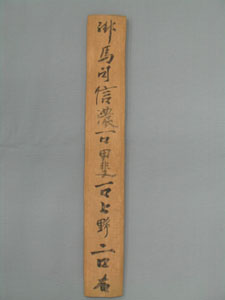 御馬司信濃一口甲斐一口上野二口